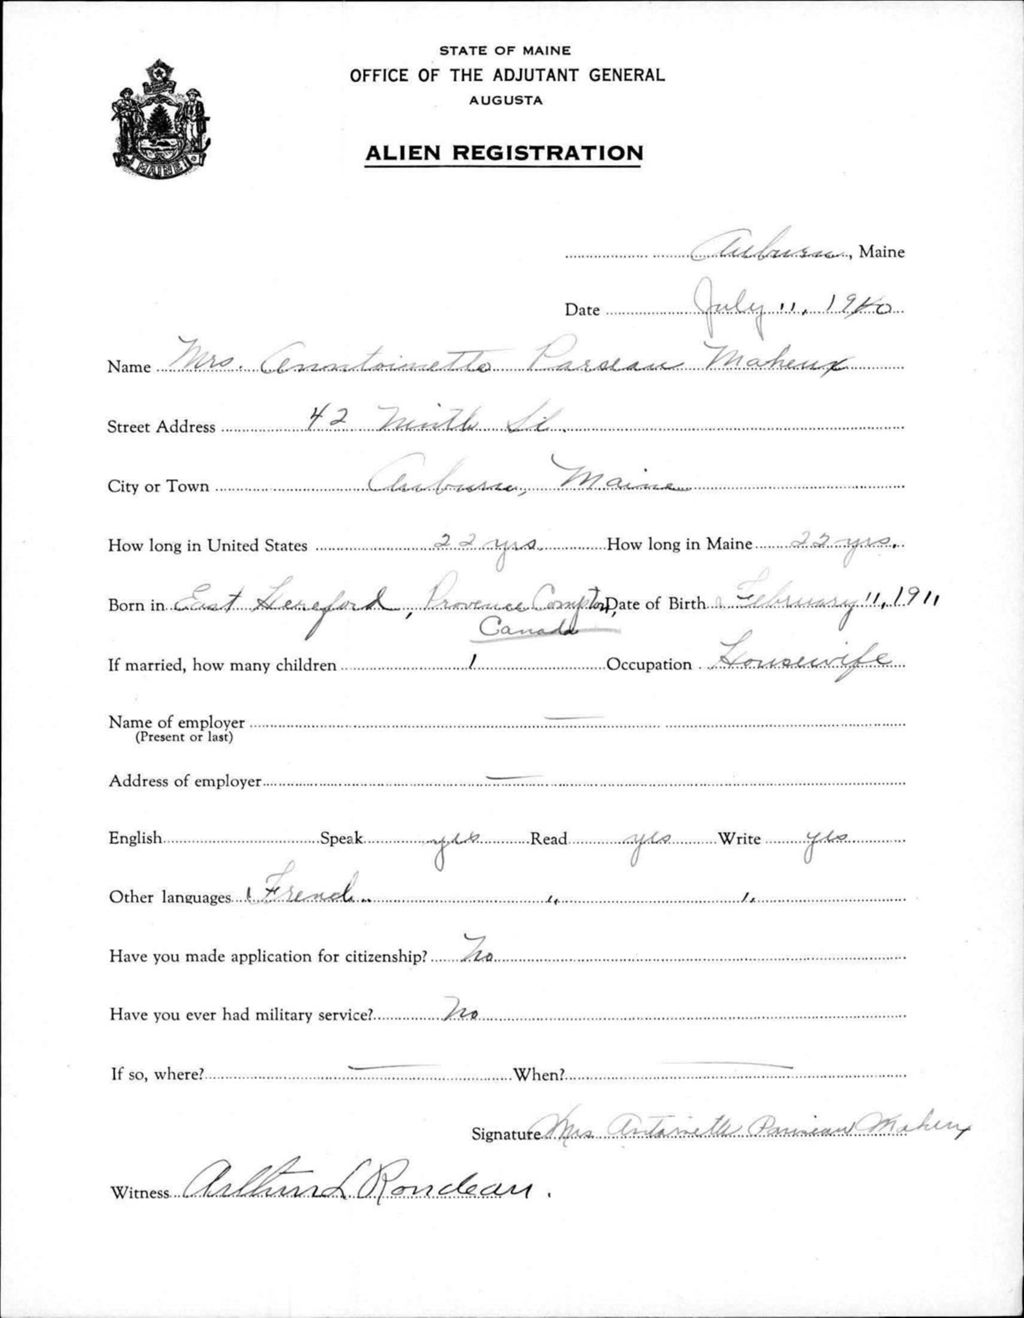 STATE OF MAINE
OFFICE OF THE ADJUTANT GENERAL
AUGUSTA
ALIEN REGISTRATION
MAINE
Auburn, Maine
Date July 11, 1940
Name Mrs. Anntoinette Parseau Maheux
Street Address 42 Ninth St.
City or Town Auburn, Maine
How long in United States 22 yrs. How long in Maine 22 yrs.
Born in East Hereford, Provence Compton, Canada Date of Birth February 11, 1911
If married, how many children 1 Occupation Housewife
Name of employer —
(Present or last)
Address of employer —
English Speak yes Read yes Write yes
Other languages French " " "
Have you made application for citizenship? No
Have you ever had military service? No
If so, where? — When? —
Signature Mrs Antoinette Maheux
Witness Arthur L Rondeau.